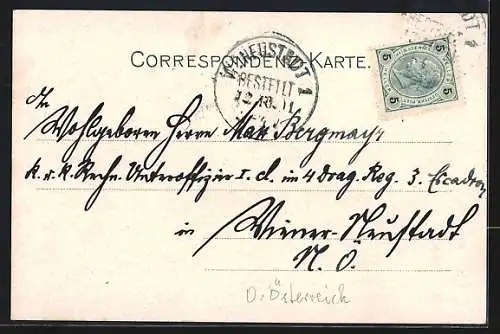 CORRESPONDENZ-KARTE.
WR. NEUSTADT 1
BESTELLT
5 5
5 5
An
Wohlgeboren Herrn Max Bergmayr
k. u. k. Rechn. Unteroffizier I. cl. in 4 Drag. Reg. 3. Escadron
in Wiener-Neustadt
N. Ö.
O.-Österreich